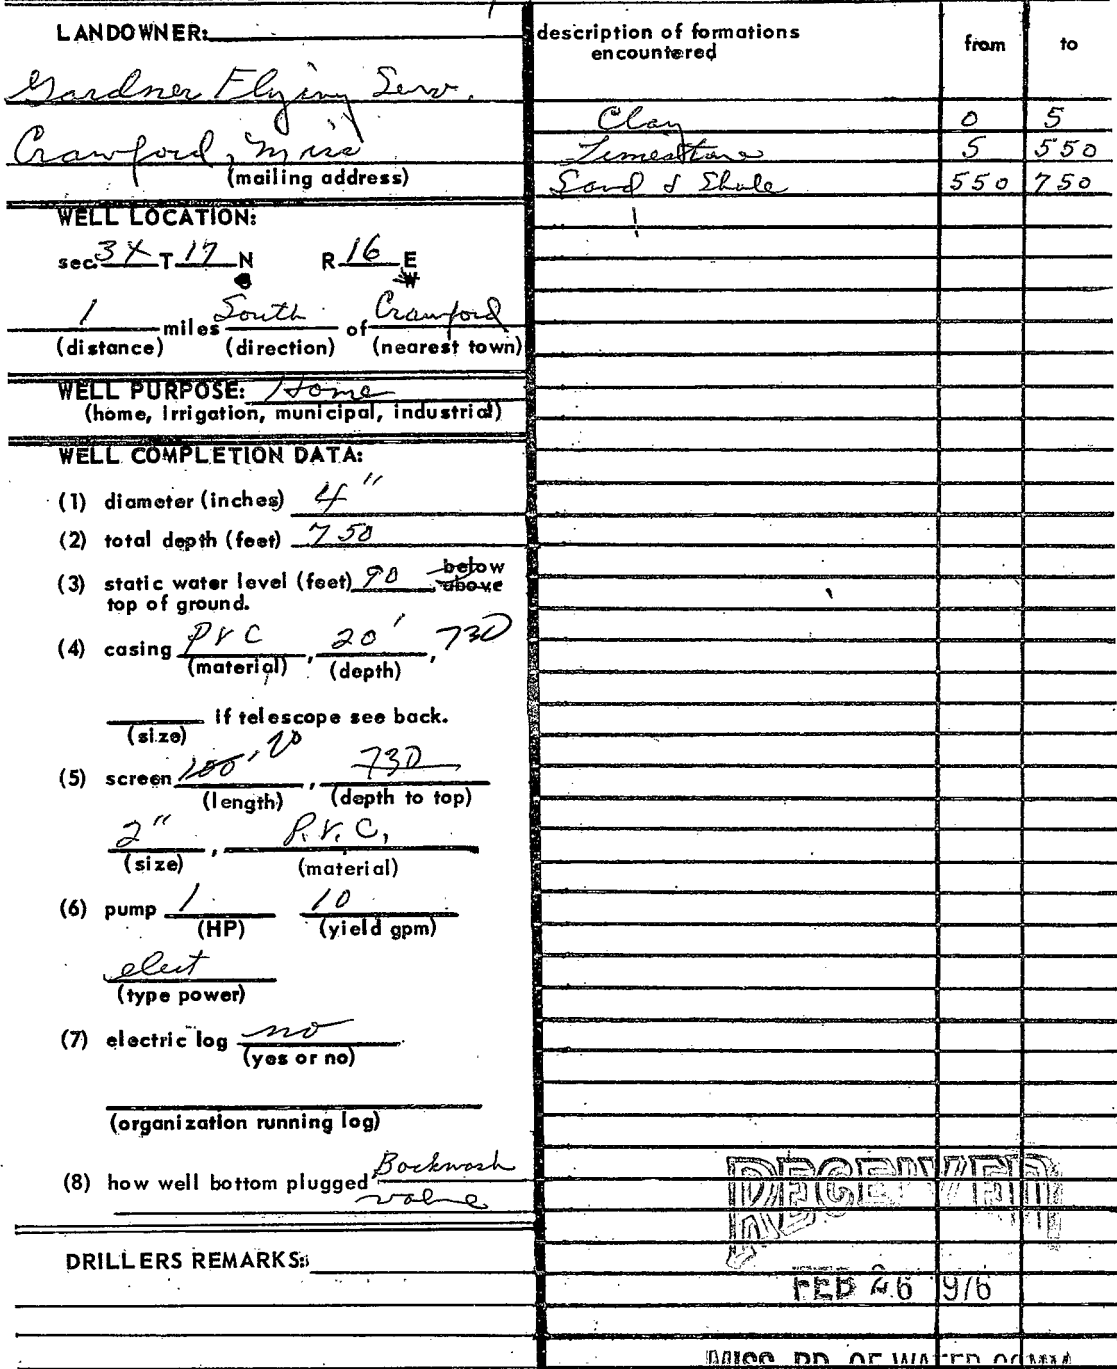 LANDOWNER:
Gardner Flying Serv.
Crawford, Miss
(mailing address)
WELL LOCATION:
sec. 34 T 17 N R 16 E
W
1 miles South of Crawford
(distance) (direction) (nearest town)
WELL PURPOSE: Home
(home, irrigation, municipal, industrial)
WELL COMPLETION DATA:
(1) diameter (inches) 4"
(2) total depth (feet) 750
(3) static water level (feet) 90 below
above
top of ground.
(4) casing PVC, 20', 730
(material) (depth)
if telescope see back.
(size)
(5) screen 100' 20, 730
(length) (depth to top)
2", P.V.C.
(size) (material)
(6) pump 1 10
(HP) (yield gpm)
elect
(type power)
(7) electric log no
(yes or no)
(organization running log)
(8) how well bottom plugged Backwash
valve
DRILLERS REMARKS:
description of formations from to
encountered
Clay 0 5
Limestone 5 550
Sand & Shale 550 750
RECEIVED
FEB 26 1976
MISS. BD. OF WATER COMM.